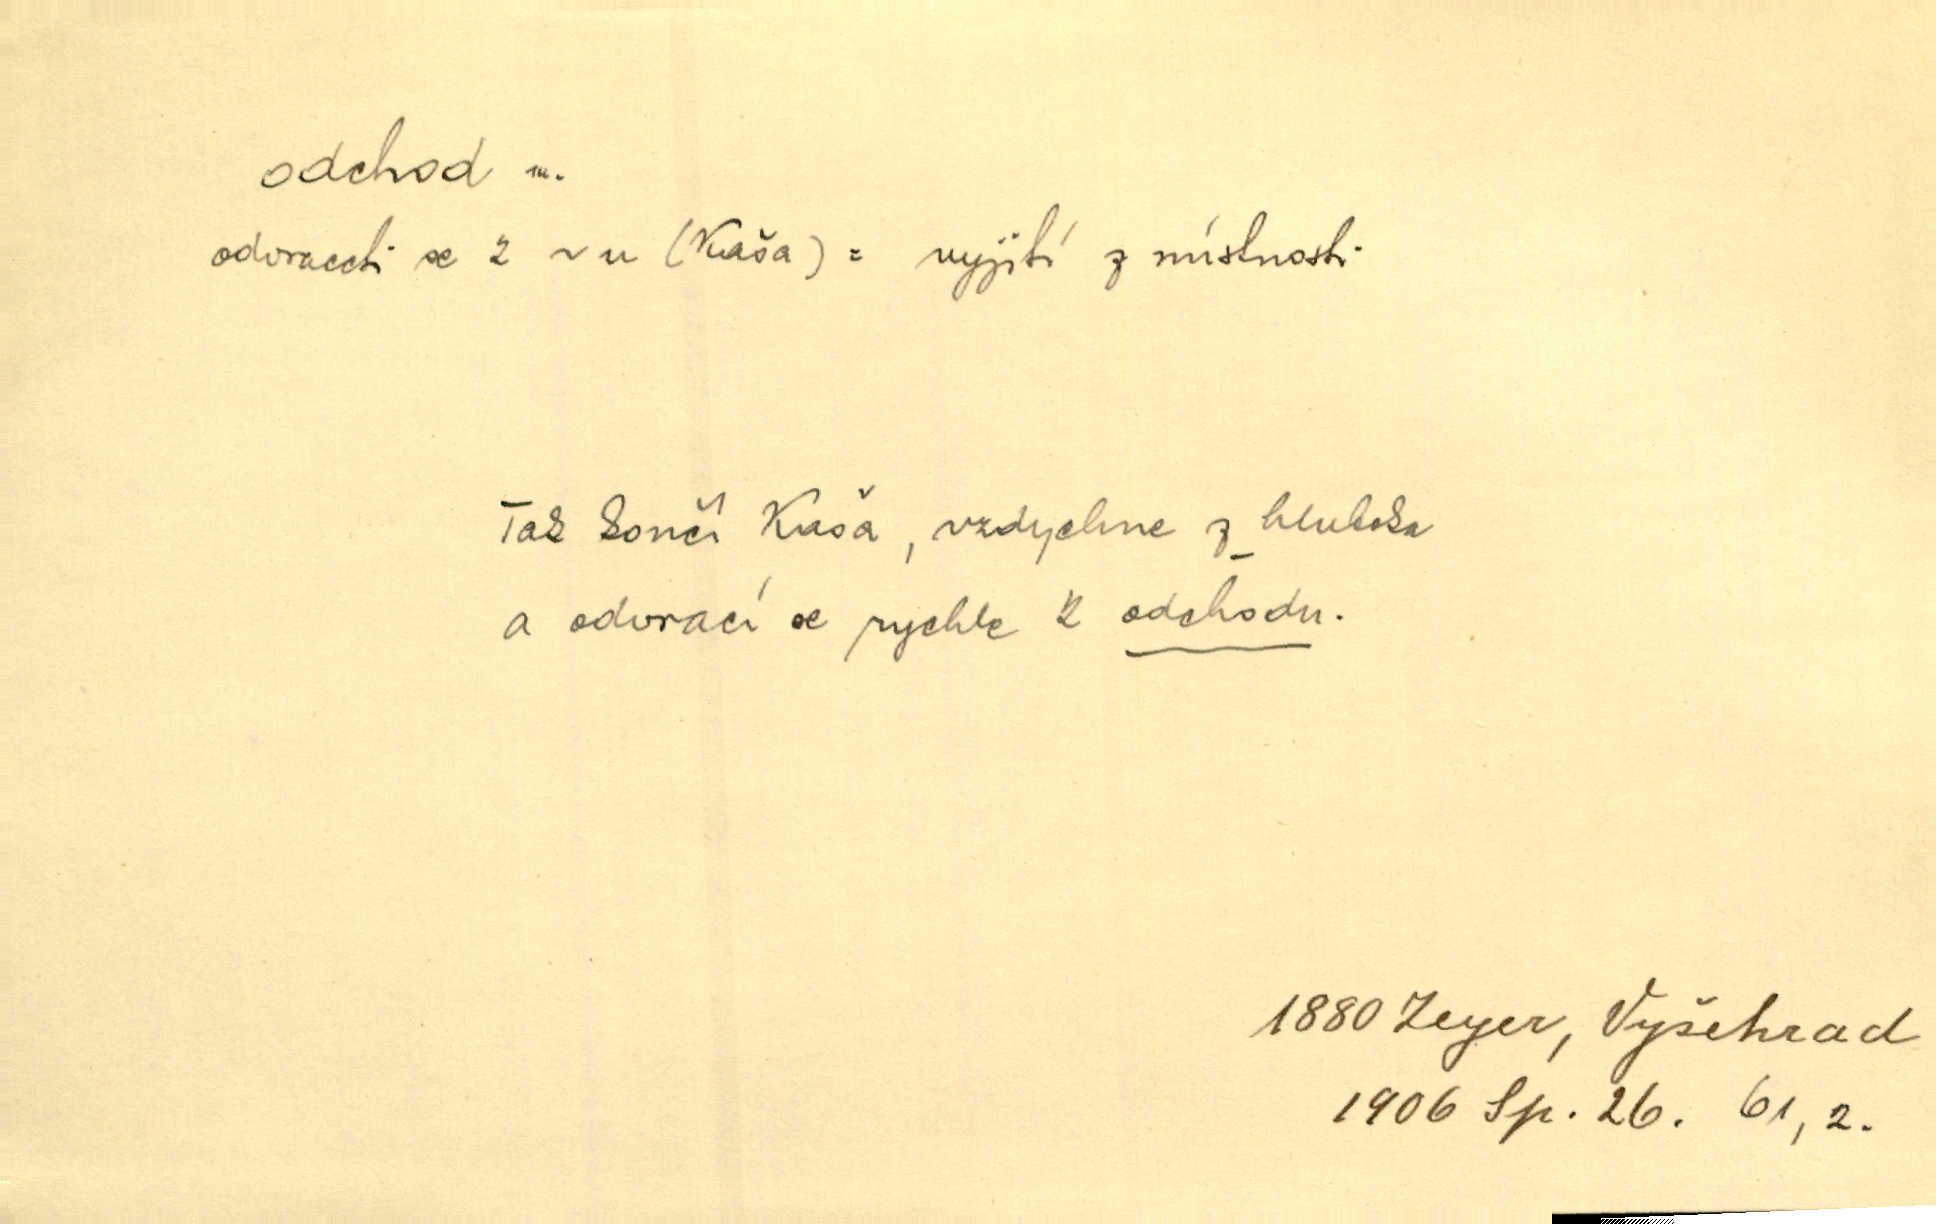 odchod m.
odvraceti se k ~ u (Kaša) = vyjití z místnosti
Tak končí Kaša, vzdychne z_hluboka
a odvrací se rychle k odchodu.
1880 Zeyer, Vyšehrad
1906 Sp. 26. 61, 2.